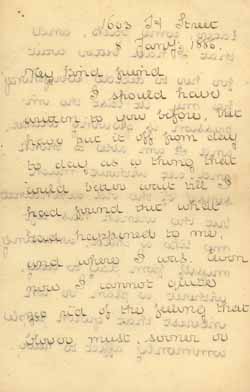 1603 Street
8 Jany, 1886.
My kind friend
I should have
written to you before, but
have put it off from day
to day as a thing that
could better wait till I
had found out what
had happened to me
and where I was. Even
now I cannot quite
get rid of the feeling that
must, sooner or